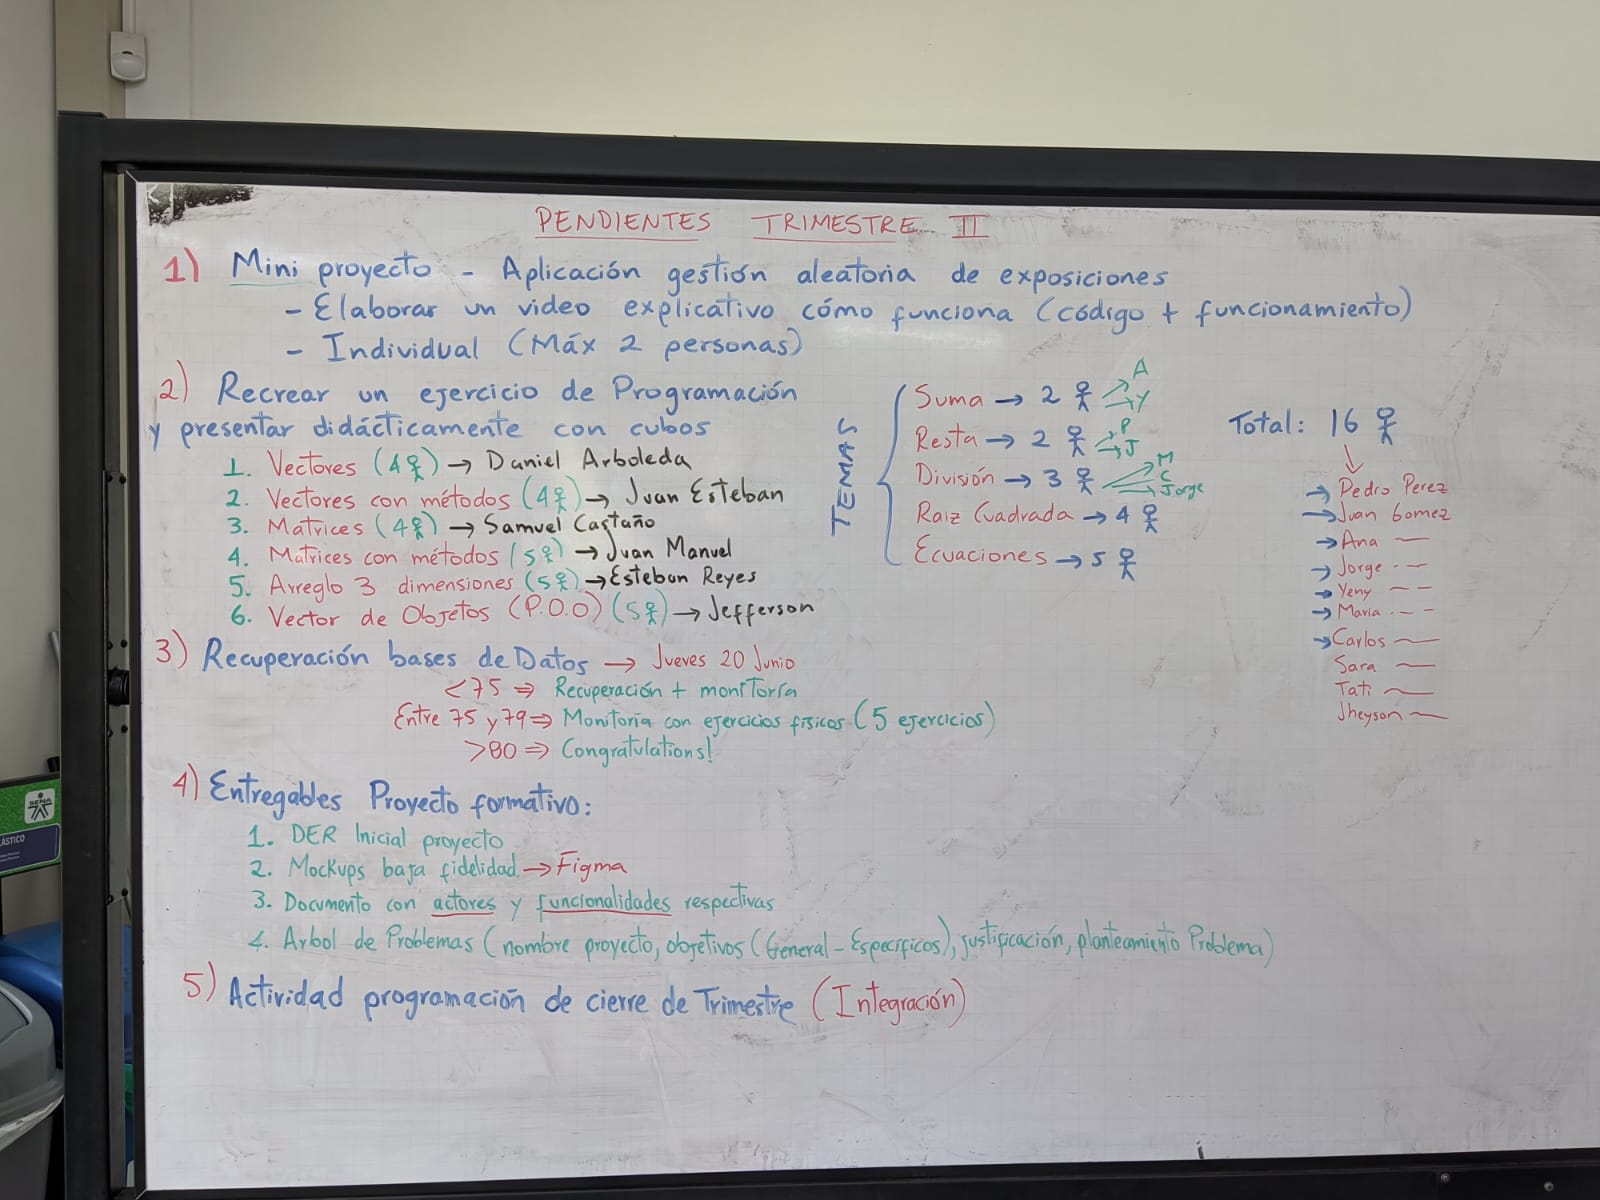 PENDIENTES TRIMESTRE II
1) Mini proyecto - Aplicación gestión aleatoria de exposiciones
- Elaborar un video explicativo cómo funciona (código + funcionamiento)
- Individual (Máx 2 personas)
2) Recrear un ejercicio de Programación
y presentar didácticamente con cubos
1. Vectores (4) → Daniel Arboleda
2. Vectores con métodos (4) → Juan Esteban
3. Matrices (4) → Samuel Castaño
4. Matrices con métodos (5) → Juan Manuel
5. Arreglo 3 dimensiones (5) → Esteban Reyes
6. Vector de Objetos (P.O.O) (5) → Jefferson
TEMAS
Suma → 2 A Y
Resta → 2 P J
División → 3 M C Jorge
Raiz Cuadrada → 4
Ecuaciones → 5
Total: 16
→ Pedro Perez
→ Juan Gomez
→ Ana
→ Jorge
→ Yeny
→ Maria
→ Carlos
Sara
Tati
Jheyson
3) Recuperación bases de Datos → Jueves 20 Junio
<75 ⇒ Recuperación + monitoría
Entre 75 y 79 ⇒ Monitoría con ejercicios físicos (5 ejercicios)
>80 ⇒ Congratulations!
4) Entregables Proyecto formativo:
1. DER Inicial proyecto
2. Mockups baja fidelidad → Figma
3. Documento con actores y funcionalidades respectivas
4. Arbol de Problemas (nombre proyecto, objetivos (General - Específicos), justificación, planteamiento Problema)
5) Actividad programación de cierre de Trimestre (Integración)
SENA